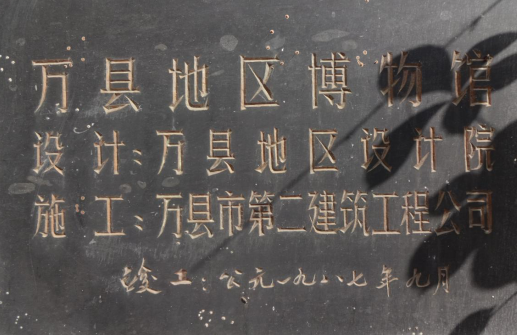 万县地区博物馆
设计：万县地区设计院
施工：万县市第二建筑工程公司
竣工：公元一九八七年九月